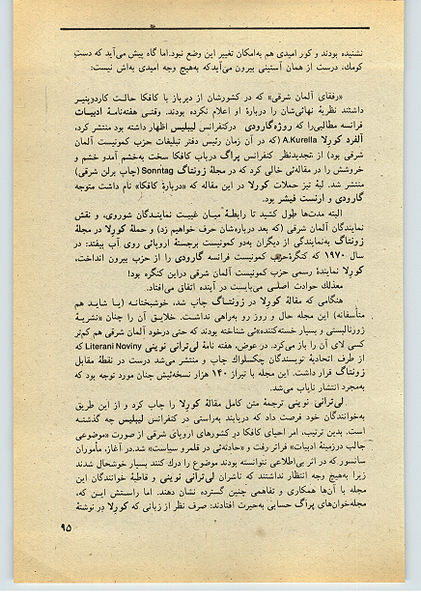 نشنیده بودند و کور امیدی هم به‌امکان تغییر این وضع نبود. اما گاه پیش می‌آید که دستِ
کومك، درست از همان آستینی بیرون می‌آید که به‌هیچ وجه امیدی به‌اش نیست:
«رفقای آلمان شرقی» که در کشورشان از دیرباز با کافکا حالت کاردوپنیر
داشتند نظریهٔ نهائی‌شان را دربارهٔ او اعلام نکرده بودند. وقتی هفته‌نامهٔ ادبیات
فرانسه مطالبی را که روژه گارودی در کنفرانس لیبلیس اظهار داشته بود منتشر کرد،
آلفرد کورلا A.Kurella (که در آن زمان رئیس دفتر تبلیغات حزب کمونیست آلمان
شرقی بود) از تجدیدنظر کنفرانس پراگ درباب کافکا سخت به‌خشم آمد و خشم و
خروشش را در مقاله‌ئی خالی کرد که در مجلهٔ زونتاگ Sonntag (چاپ برلن شرقی)
منتشر شد. لبهٔ تیز حملات کورلا در این مقاله که «دربارهٔ کافکا» نام داشت متوجه
گارودی و ارنست فیشر بود.
البته مدت‌ها طول کشید تا رابطهٔ میان غیبت نمایندگان شوروی، و نقش
نمایندگان آلمان شرقی (که بعد درباره‌شان حرف خواهیم زد) و حملهٔ کورلا در مجلهٔ
زونتاگ به‌نمایندگی از دیگران به‌دو کمونیست برجستهٔ اروپائی روی آب بیفتد: در
سال ۱۹۷۰ که کنگرهٔ حزب کمونیست فرانسه گارودی را از حزب بیرون انداخت،
کورلا نمایندهٔ رسمی حزب کمونیست آلمان شرقی در این کنگره بود!
معذلك حوادث اصلی می‌بایست در آینده اتفاق می‌افتاد.
هنگامی که مقالهٔ کورلا در زونتاگ چاپ شد، خوشبختانه (یا شاید هم
متأسفانه) این مجله حال و روز رو به‌راهی نداشت. خلایق آن را چنان «نشریهٔ
زورنالیستی و بسیار خسته‌کننده»ئی شناخته بودند که حتی در خود آلمان شرقی هم کم‌تر
کسی لای آن را باز می‌کرد. در عوض، هفته نامهٔ لی‌ترانی نوینی Literani Noviny که
از طرف اتحادیهٔ نویسندگان چکسلواك چاپ و منتشر می‌شد درست در نقطهٔ مقابل
زونتاگ قرار داشت. این مجله با تیراژ ۱۴۰ هزار نسخه‌ئیش چنان مورد توجه بود که
به‌مجرد انتشار نایاب می‌شد.
لی‌ترانی نوینی ترجمهٔ متن کامل مقالهٔ کورلا را چاپ کرد و از این طریق
به‌خوانندگان خود فرصت داد که دریابند به‌راستی در کنفرانس لیبلیس چه گذشته
است. بدین ترتیب، امر احیای کافکا در کشورهای اروپای شرقی از صورت «موضوعی
جالب در زمینهٔ ادبیات» فراتر رفت و «حادثه‌ئی در قلمرو سیاست» شد. در آغاز، مأموران
سانسور که در اثر بی‌اطلاعی نتوانسته بودند موضوع را درك کنند بسیار خوشحال شدند
زیرا به‌هیچ وجه انتظار نداشتند که ناشران لی‌ترانی نوینی و قاطبهٔ خوانندگان این
مجله با آن‌ها همکاری و تفاهمی چنین گسترده نشان دهند. اما راستش این که،
مجله‌خوان‌های پراگ حسابی به‌حیرت افتادند: صرف نظر از زبانی که کورلا در نوشتهٔ
۹۵